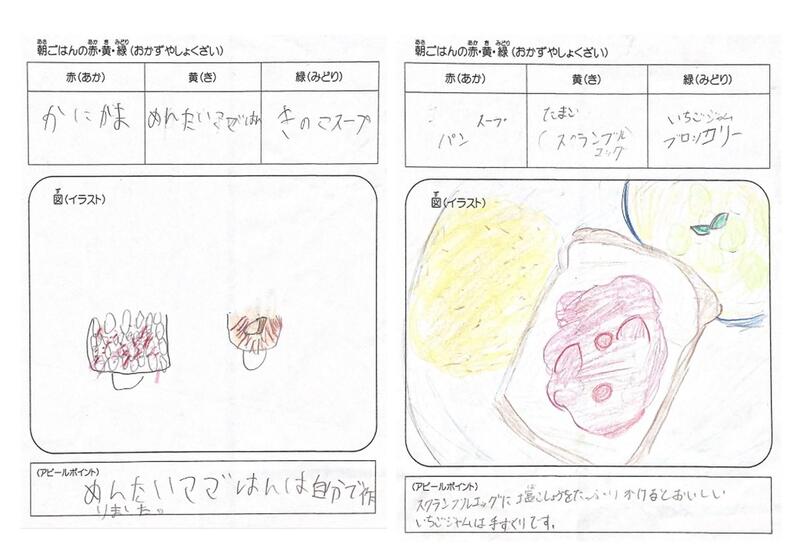 朝ごはんの赤・黄・緑（おかずやしょくざい）
赤（あか） 黄（き） 緑（みどり）
かにがま めんたいマヨごはん きのこスープ
図（イラスト）
（アピールポイント）
めんたいマヨごはんは自分で作
りました。
朝ごはんの赤・黄・緑（おかずやしょくざい）
赤（あか） 黄（き） 緑（みどり）
スープ たまご いちごジャム
パン （スクランブル ブロッコリー
エッグ）
図（イラスト）
（アピールポイント）
スクランブルエッグに塩こしょうをたっぷりかけるとおいしい
いちごジャムは手ずくりです。